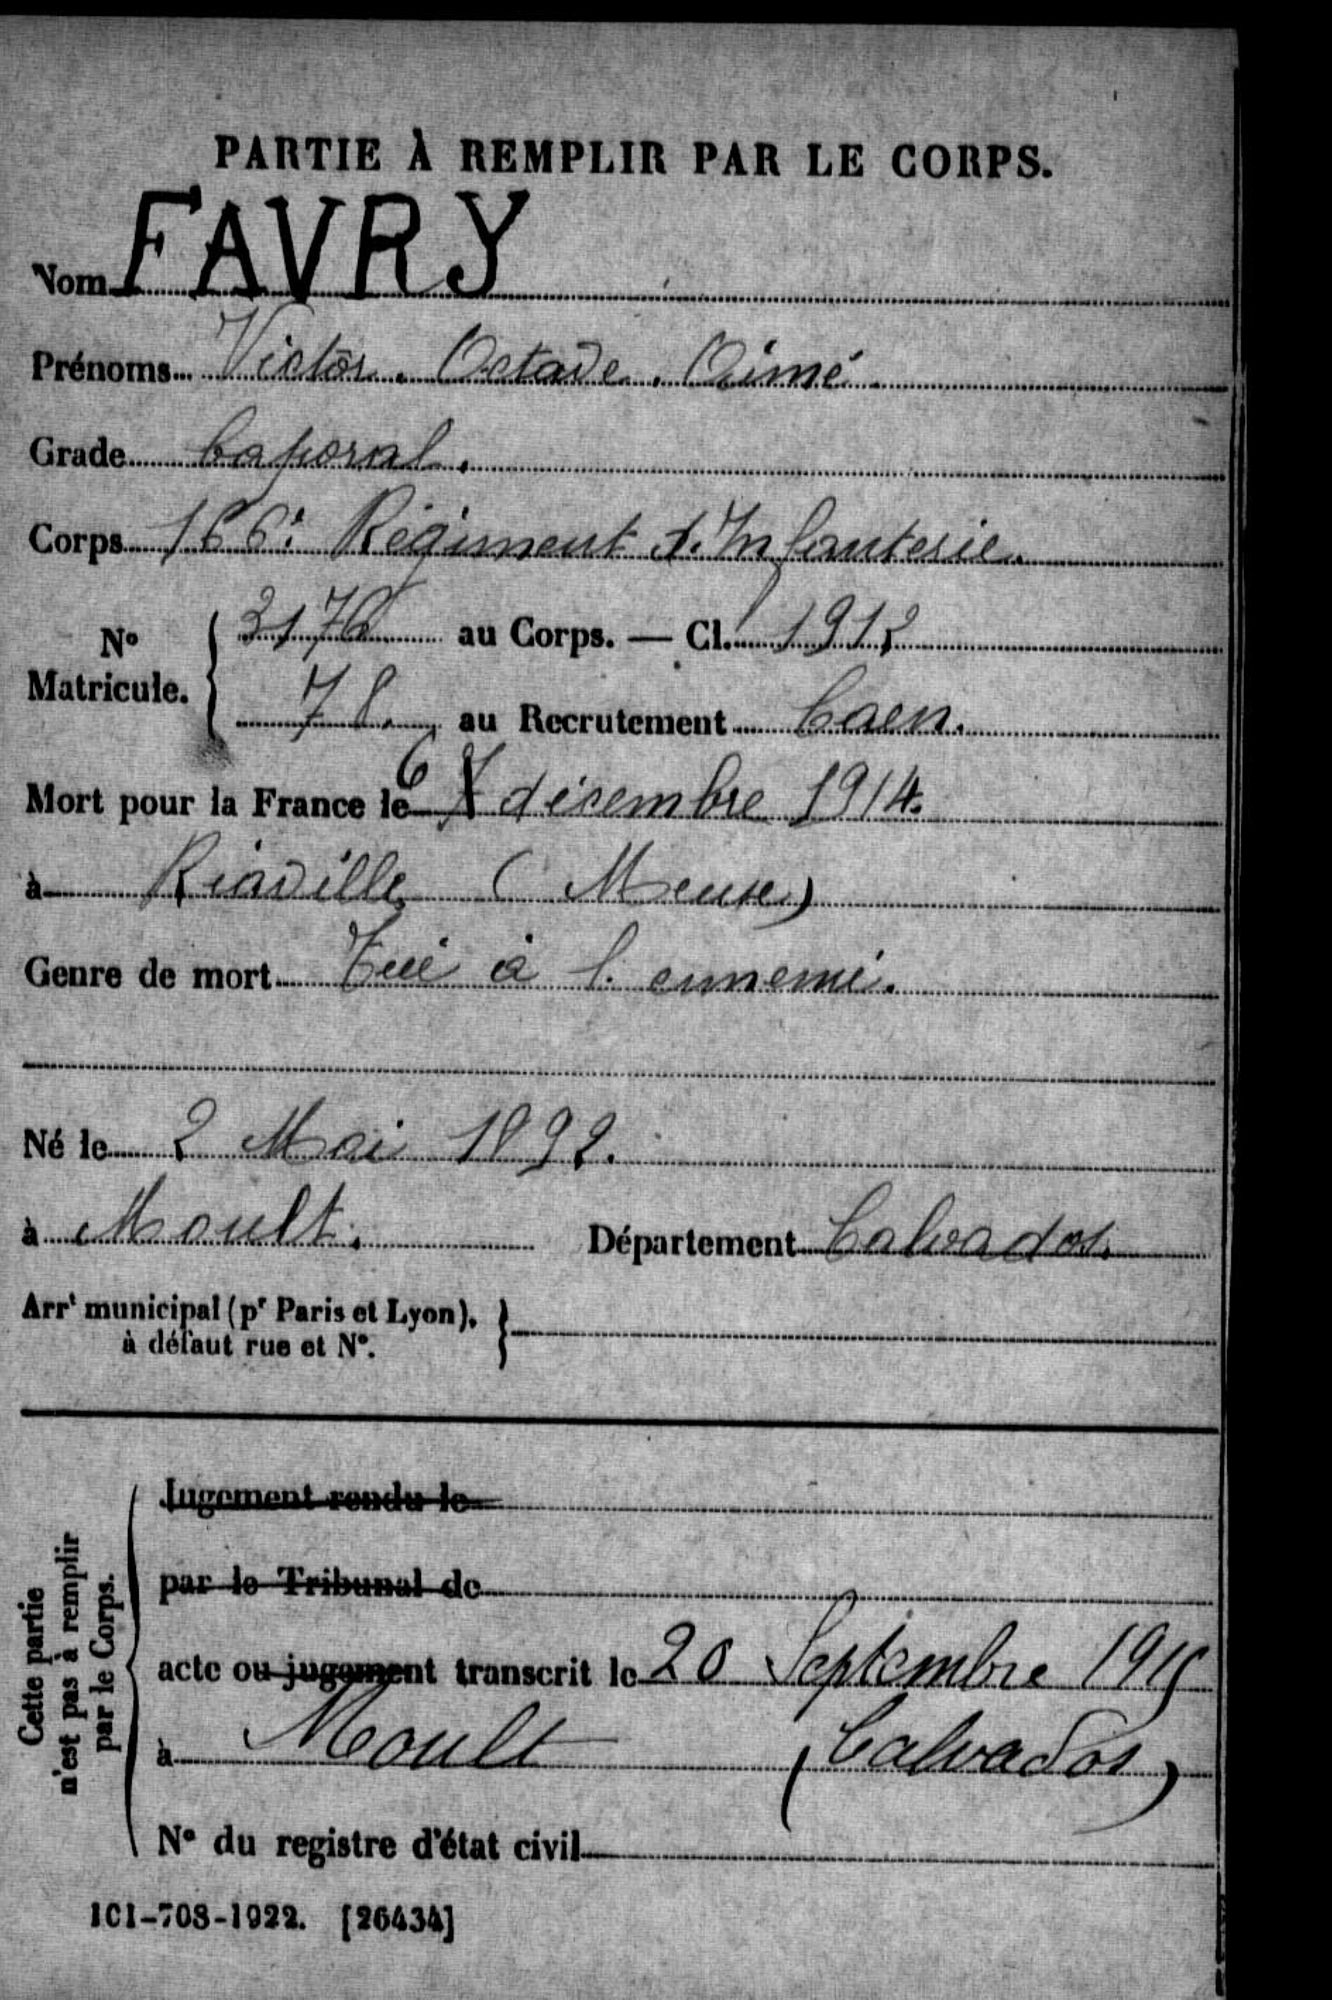 PARTIE À REMPLIR PAR LE CORPS.
Nom FAVRY
Prénoms Victor. Octave. Aimé.
Grade Caporal.
Corps 166e Régiment d'Infanterie.
N° Matricule. 3176 au Corps. — Cl. 1912
78. au Recrutement Caen.
Mort pour la France le 6 7 décembre 1914.
à Riaville (Meuse)
Genre de mort Tué à l'ennemi.
Né le 2 Mai 1892.
à Moult. Département Calvados.
Arrt municipal (pr Paris et Lyon),
à défaut rue et N°.
Cette partie
n'est pas à remplir
par le Corps.
Jugement rendu le
par le Tribunal de
acte ou jugement transcrit le 20 Septembre 1915
à Moult (Calvados)
N° du registre d'état civil
101-708-1922. [26434]